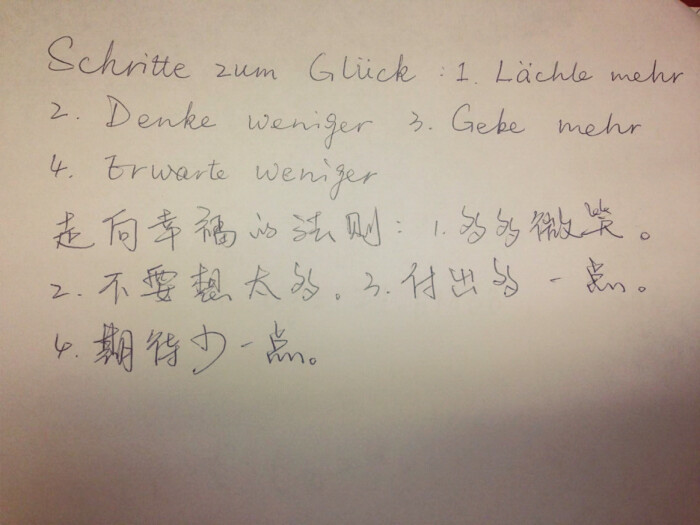 Schritte zum Glück : 1. Lächle mehr
2. Denke weniger 3. Gebe mehr
4. Erwarte weniger
走向幸福的法则：1.多多微笑。
2.不要想太多。3.付出多一点。
4.期待少一点。